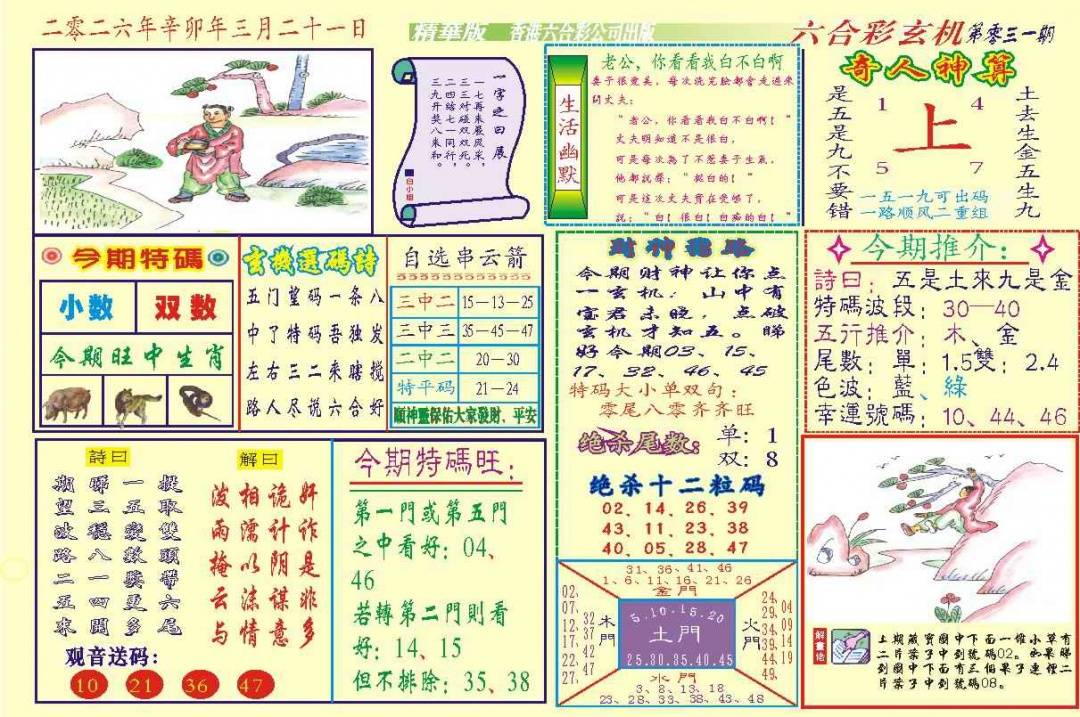 二零二六年辛卯年三月二十一日
精華版 香港六合彩公司出版
六合彩玄机 第零三一期
一字之曰展
一三二三
七三四九
再对结开
白小姐
生活幽默
老公，你看看我白不白啊
妻子很爱美，每次洗完脸都会走过来
问丈夫：
“老公，你看看我白不白啊！”
丈夫明知道不是很白，
可是每次为了不惹妻子生气，
他都说声：“挺白的！”
可是这次丈夫实在受够了，
说：“白！很白！白痴的白！”
奇人神算
是五是九不要错
1 4
上
5 7
土去生金五生九
一五一九可出码
一路顺风二重组
今期特碼
小数 双数
今期旺中生肖
玄機選碼詩
五门望码一条八
中了特码吾独发
左右三二来瞎搅
路人尽说六合好
自选串云箭
三中二 15—13—25
三中三 35—45—47
二中二 20—30
特平码 21—24
順神靈保佑大家發財、平安
財神指路
今期财神让你点
一玄机：山中有
宝君未晓，点破
玄机才知五。睇
好今期03、15、
17、32、46、45
特码大小单双句：
零尾八零齐齐旺
绝杀尾数： 单：1
双：8
绝杀十二粒码
02、14、26、39
43、11、23、38
40、05、28、47
今期推介：
詩曰：五是土來九是金
特碼波段：30—40
五行推介：木、金
尾數：單：1.5雙：2.4
色波：藍、綠
幸運號碼：10、44、46
詩曰
期睇一提
望三五取
波穩變雙
路八數頭
二一與帶
五四更六
來開多尾
解曰
波相诡奸
雨濡计诈
掩以阴是
云沫谋非
与情意多
观音送码：
10 21 36 47
今期特碼旺：
第一門或第五門
之中看好：04、
46
若轉第二門則看
好：14、15
但不排除：35、38
31、36、41、46
1、6、11、16、21、26
金門
02、07、12、17、22、27、
32、37、42、47
木門
5.10.15.20
土門
25.30.35.40.45
火門
24、29、34、39、44、49、
04、09、14、19
水門
3、8、13、18
23、28、33、38、43、48
解畫佬
上期藏寶圖中下面一堆小草有
二片葉子中到號碼02。如果睇
到圖中下面有三個果子連徑二
片葉子中到號碼08。